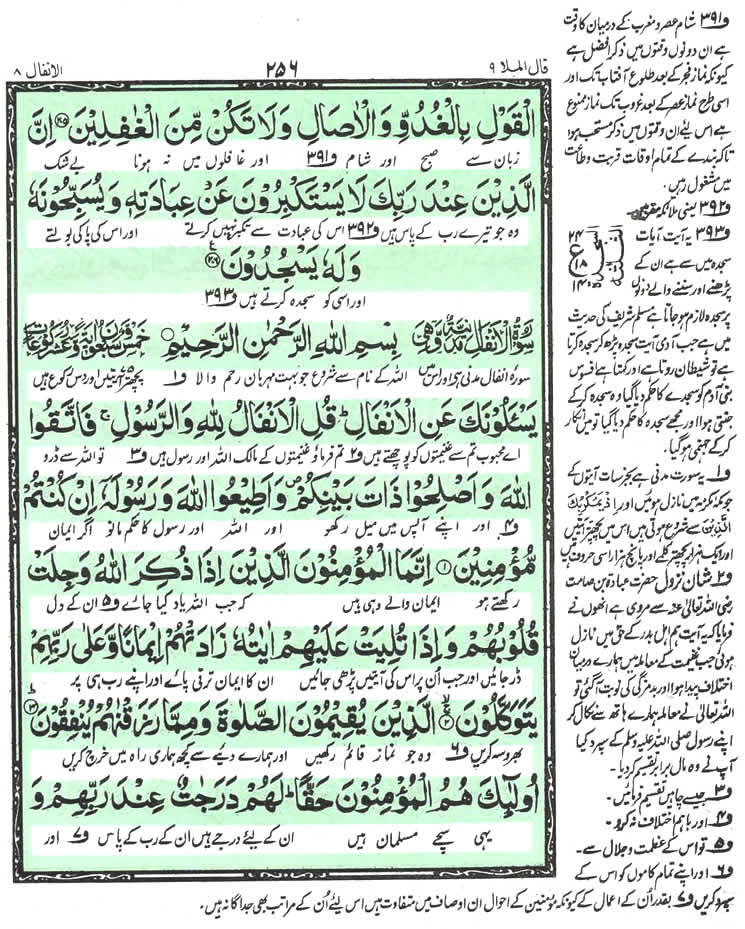 قال الملا ۹
۲۵۶
الانفال ۸
الْقَوْلِ بِالْغُدُوِّ وَالْاٰصَالِ وَلَا تَكُنْ مِّنَ الْغٰفِلِيْنَ ۲۰۵ اِنَّ
زبان سے صبح اور شام ف۳۹۱ اور غافلوں میں نہ ہونا بے شک
الَّذِيْنَ عِنْدَ رَبِّكَ لَا يَسْتَكْبِرُوْنَ عَنْ عِبَادَتِهٖ وَيُسَبِّحُوْنَهٗ
وہ جو تیرے رب کے پاس ہیں ف۳۹۲ اس کی عبادت سے تکبر نہیں کرتے اور اس کی پاکی بولتے
وَلَهٗ يَسْجُدُوْنَ ۲۰۶
اور اسی کو سجدہ کرتے ہیں ف۳۹۳
سُوْرَةُ الْاَنْفَالِ مَدَنِيَّةٌ وَّهِيَ بِسْمِ اللّٰهِ الرَّحْمٰنِ الرَّحِيْمِ
سورہ انفال مدنی ہے اور اس میں اللہ کے نام سے شروع جو بہت مہربان رحم والا ف۱ پچھتر آیتیں اور دس رکوع ہیں
يَسْـَٔلُوْنَكَ عَنِ الْاَنْفَالِ ؕ قُلِ الْاَنْفَالُ لِلّٰهِ وَالرَّسُوْلِ ۚ فَاتَّقُوا
اے محبوب تم سے غنیمتوں کو پوچھتے ہیں ف۲ تم فرماؤ غنیمتوں کے مالک اللہ اور رسول ہیں ف۳ تو اللہ سے ڈرو
اللّٰهَ وَاَصْلِحُوْا ذَاتَ بَيْنِكُمْ ۪ وَاَطِيْعُوا اللّٰهَ وَرَسُوْلَهٗۤ اِنْ كُنْتُمْ
ف۴ اور اپنے آپس میں میل رکھو اور اللہ اور رسول کا حکم مانو اگر ایمان
مُّؤْمِنِيْنَ ۱ اِنَّمَا الْمُؤْمِنُوْنَ الَّذِيْنَ اِذَا ذُكِرَ اللّٰهُ وَجِلَتْ
رکھتے ہو ایمان والے وہی ہیں کہ جب اللہ یاد کیا جائے ف۵ ان کے دل
قُلُوْبُهُمْ وَاِذَا تُلِيَتْ عَلَيْهِمْ اٰيٰتُهٗ زَادَتْهُمْ اِيْمَانًا وَّعَلٰى رَبِّهِمْ
ڈر جائیں اور جب اُن پر اس کی آیتیں پڑھی جائیں ان کا ایمان ترقی پائے اور اپنے رب ہی پر
يَتَوَكَّلُوْنَ ۲ الَّذِيْنَ يُقِيْمُوْنَ الصَّلٰوةَ وَمِمَّا رَزَقْنٰهُمْ يُنْفِقُوْنَ ۳
بھروسہ کریں ف۶ وہ جو نماز قائم رکھیں اور ہمارے دیے سے کچھ ہماری راہ میں خرچ کریں
اُولٰٓئِكَ هُمُ الْمُؤْمِنُوْنَ حَقًّا ؕ لَهُمْ دَرَجٰتٌ عِنْدَ رَبِّهِمْ وَ
یہی سچے مسلمان ہیں ان کے لیئے درجے ہیں ان کے رب کے پاس ف۷ اور
ف۳۹۱ شام عصر و مغرب کے درمیان کا وقت
ہے ان دونوں وقتوں میں ذکر افضل ہے
کیونکہ نماز فجر کے بعد طلوع آفتاب تک اور
اسی طرح نماز عصر کے بعد غروب تک نماز ممنوع
ہے اس لیئے ان وقتوں میں ذکر مستحب ہوا
تاکہ بندے کے تمام اوقات قربت و طاعت
میں مشغول رہیں
ف۳۹۲ یعنی ملائکہ مقربین
ف۳۹۳ یہ آیت آیات
سجدہ میں سے ہے ان کے
پڑھنے اور سننے والے دونوں
پر سجدہ لازم ہو جاتا ہے مسلم شریف کی حدیث
میں ہے جب آدمی آیت سجدہ پڑھ کر سجدہ کرتا
ہے تو شیطان روتا ہے اور کہتا ہے افسوس
بنی آدم کو سجدے کا حکم دیا گیا وہ سجدہ کر کے
جنتی ہوا اور مجھے سجدہ کا حکم دیا گیا تو میں انکار
کر کے جہنمی ہو گیا۔
ف۱ یہ سورت مدنی ہے بجز سات آیتوں کے
جو مکہ مکرمہ میں نازل ہوئیں اور اِذْ يَمْكُرُ بِكَ
الَّذِيْنَ سے شروع ہوتی ہیں اس میں پچھتر آیتیں
اور ایک ہزار پچھتر کلمے اور پانچ ہزار اسی حروف ہیں
ف۲ شان نزول حضرت عبادہ بن صامت
رضی اللہ تعالیٰ عنہ سے مروی ہے انھوں نے
فرمایا کہ یہ آیت ہم اہل بدر کے حق میں نازل
ہوئی جب غنیمت کے معاملہ میں ہمارے درمیان
اختلاف پیدا ہوا اور بدمزگی کی نوبت آگئی تو
اللہ تعالیٰ نے معاملہ ہمارے ہاتھ سے نکال کر
اپنے رسول صلی اللہ علیہ وسلم کے سپرد کیا
آپ نے وہ مال برابر تقسیم کر دیا۔
ف۳ جیسے چاہیں تقسیم فرمائیں۔
ف۴ اور باہم اختلاف نہ کرو۔
ف۵ تو اس کے عظمت و جلال سے۔
ف۶ اور اپنے تمام کاموں کو اس کے
سپرد کریں ف۷ بقدر اُن کے اعمال کے کیونکہ مؤمنین کے احوال ان اوصاف میں متفاوت ہیں اس لیئے اُن کے مراتب بھی جداگانہ ہیں۔